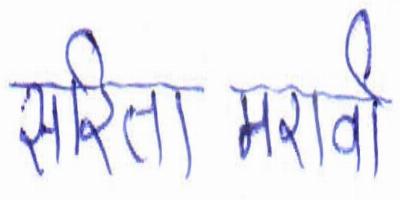 सरिता मरावी